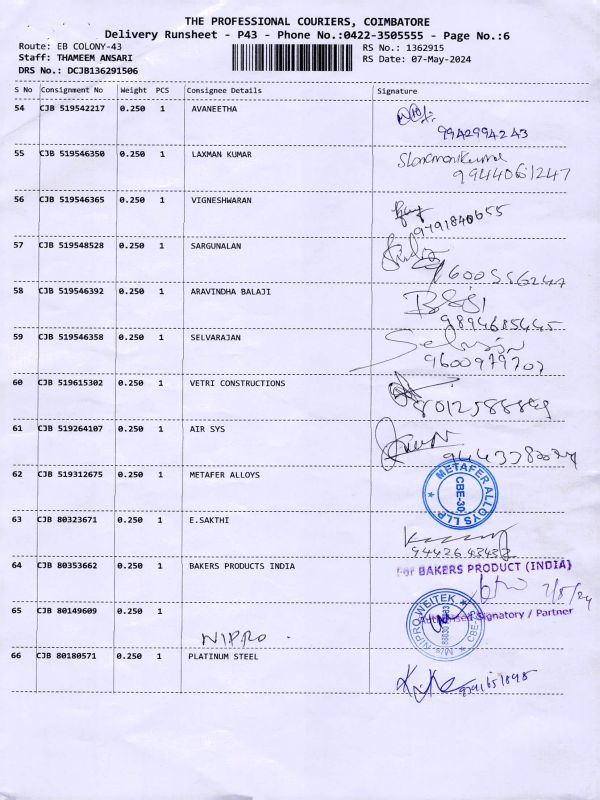 THE PROFESSIONAL COURIERS, COIMBATORE
Delivery Runsheet - P43 - Phone No.:0422-3505555 - Page No.:6
Route: EB COLONY-43
RS No.: 1362915
Staff: THAMEEM ANSARI
RS Date: 07-May-2024
DRS No.: DCJB136291506
S No Consignment No Weight PCS Consignee Details Signature
54 CJB 519542217 0.250 1 AVANEETHA
9942994243
55 CJB 519546350 0.250 1 LAXMAN KUMAR
9944061247
56 CJB 519546365 0.250 1 VIGNESHWARAN
9791840655
57 CJB 519548528 0.250 1 SARGUNALAN
9600556247
58 CJB 519546392 0.250 1 ARAVINDHA BALAJI
9894685445
59 CJB 519546358 0.250 1 SELVARAJAN
9600979707
60 CJB 519615302 0.250 1 VETRI CONSTRUCTIONS
61 CJB 519264107 0.250 1 AIR SYS
62 CJB 519312675 0.250 1 METAFER ALLOYS
METAFER ALLOYS LLP
CBE-30
63 CJB 80323671 0.250 1 E.SAKTHI
64 CJB 80353662 0.250 1 BAKERS PRODUCTS INDIA
For BAKERS PRODUCT (INDIA)
7/5/24
Authorised Signatory / Partner
65 CJB 80149609 0.250 1
NIPRO
M/s NIPRO-WEITEK
66 CJB 80180571 0.250 1 PLATINUM STEEL
9791651895